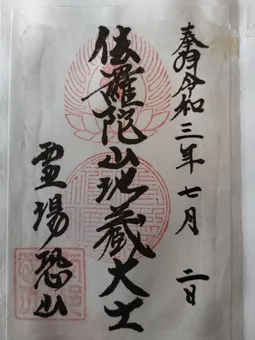 奉拝令和三年七月二日
伕羅陀山地蔵大士
霊場恐山